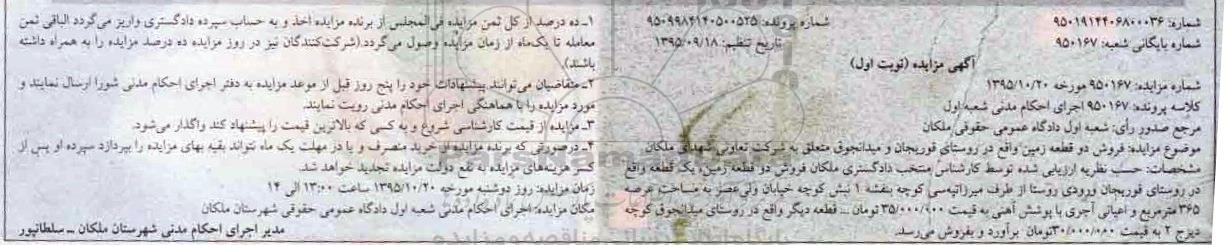 شماره: ۹۵۰۱۹۱۴۴۰۶۸۰۰۰۳۶
شماره پرونده: ۹۵۰۹۹۸۴۱۴۰۵۰۰۵۲۵
شماره بایگانی شعبه: ۹۵۰۱۶۷
تاریخ تنظیم: ۱۳۹۵/۰۹/۱۸
آگهی مزایده (نوبت اول)
شماره مزایده: ۹۵۰۱۶۷ مورخه ۱۳۹۵/۱۰/۲۰
کلاسه پرونده: ۹۵۰۱۶۷ اجرای احکام مدنی شعبه اول
مرجع صدور رأی: شعبه اول دادگاه عمومی حقوقی ملکان
موضوع مزایده: فروش دو قطعه زمین واقع در روستای قوریجان و میدانجوق متعلق به شرکت تعاونی شهدای ملکان
مشخصات: حسب نظریه ارزیابی شده توسط کارشناس منتخب دادگستری ملکان فروش دو قطعه زمین، یک قطعه واقع
در روستای قوریجان ورودی روستا از طرف میرزاتپه‌سی کوچه بنفشه ۱ نبش کوچه خیابان ولی‌عصر به مساحت عرصه
۳۶۵ مترمربع و اعیانی آجری با پوشش آهنی به قیمت ۳۵/۰۰۰/۰۰۰ تومان ... قطعه دیگر واقع در روستای میدانجوق کوچه
دیزج ۲ به قیمت ۳۰/۰۰۰/۰۰۰تومان برآورد و بفروش می‌رسد.
۱ـ ده درصد از کل ثمن مزایده فی‌المجلس از برنده مزایده اخذ و به حساب سپرده دادگستری واریز می‌گردد الباقی ثمن
معامله تا یک‌ماه از زمان مزایده وصول می‌گردد.(شرکت‌کنندگان نیز در روز مزایده ده درصد مزایده را به همراه داشته
باشند).
۲ـ متقاضیان می‌توانند پیشنهادات خود را پنج روز قبل از موعد مزایده به دفتر اجرای احکام مدنی شورا ارسال نمایند و
مورد مزایده را با هماهنگی اجرای احکام مدنی رویت نمایند.
۳ـ مزایده از قیمت کارشناسی شروع و به کسی که بالاترین قیمت را پیشنهاد کند واگذار می‌شود.
۴ـ درصورتی که برنده مزایده از خرید منصرف و یا در مهلت یک ماه نتواند بقیه بهای مزایده را بپردازد سپرده او پس از
کسر هزینه‌های مزایده به نفع دولت مزایده تجدید خواهد شد.
زمان مزایده: روز دوشنبه مورخه ۱۳۹۵/۱۰/۲۰ ساعت ۱۳:۰۰ الی ۱۴
مکان مزایده: اجرای احکام مدنی شعبه اول دادگاه عمومی حقوقی شهرستان ملکان
مدیر اجرای احکام مدنی شهرستان ملکان ــ سلطانپور